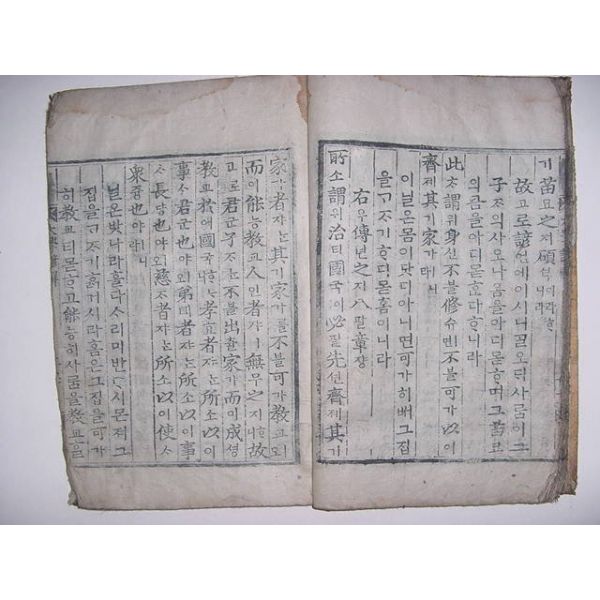 기苗묘之지碩석이라ᄒᆞ니라
故고로諺언에이시니ᄀᆞᆯ오ᄃᆡ사ᄅᆞᆷ이그
子ᄌᆞ의사오나옴을아디몯ᄒᆞ며그苗묘
의큼을아디몯ᄒᆞ다ᄒᆞ니라
此ᄎᆞ謂위身신不블修슈ㅣ면不블可가以이
齊졔其기家가ㅣ니라
이닐온몸이닷디아니면可가히ᄡᅥ그집
을ᄀᆞᄌᆞ기ᄒᆞ디몯홈이니라
右우ᄂᆞᆫ傳뎐之지八팔章쟝
所소謂위治티國국이必필先션齊졔其기
家가者쟈ᄂᆞᆫ其기家가ᄅᆞᆯ不블可가敎교ㅣ오
而이能능敎교人인者쟈ㅣ無무之지ᄒᆞ니故
고로君군子ᄌᆞᄂᆞᆫ不블出츌家가而이成셩
敎교於어國국ᄒᆞᄂᆞ니孝효者쟈ᄂᆞᆫ所소以이
事ᄉᆞ君군也야ㅣ오弟뎨者쟈ᄂᆞᆫ所소以이事
ᄉᆞ長댱也야ㅣ오慈ᄌᆞ者쟈ᄂᆞᆫ所소以이使ᄉᆞ
衆즁也야ㅣ니라
닐온밧나라흘다ᄉᆞ리미반ᄃᆞ시몬져그
집을ᄀᆞᄌᆞ기홀ᄭᅥ시라홈은그집을可가
히敎교티몯ᄒᆞ고能능히사ᄅᆞᆷ을敎교ᄒᆞᆯ